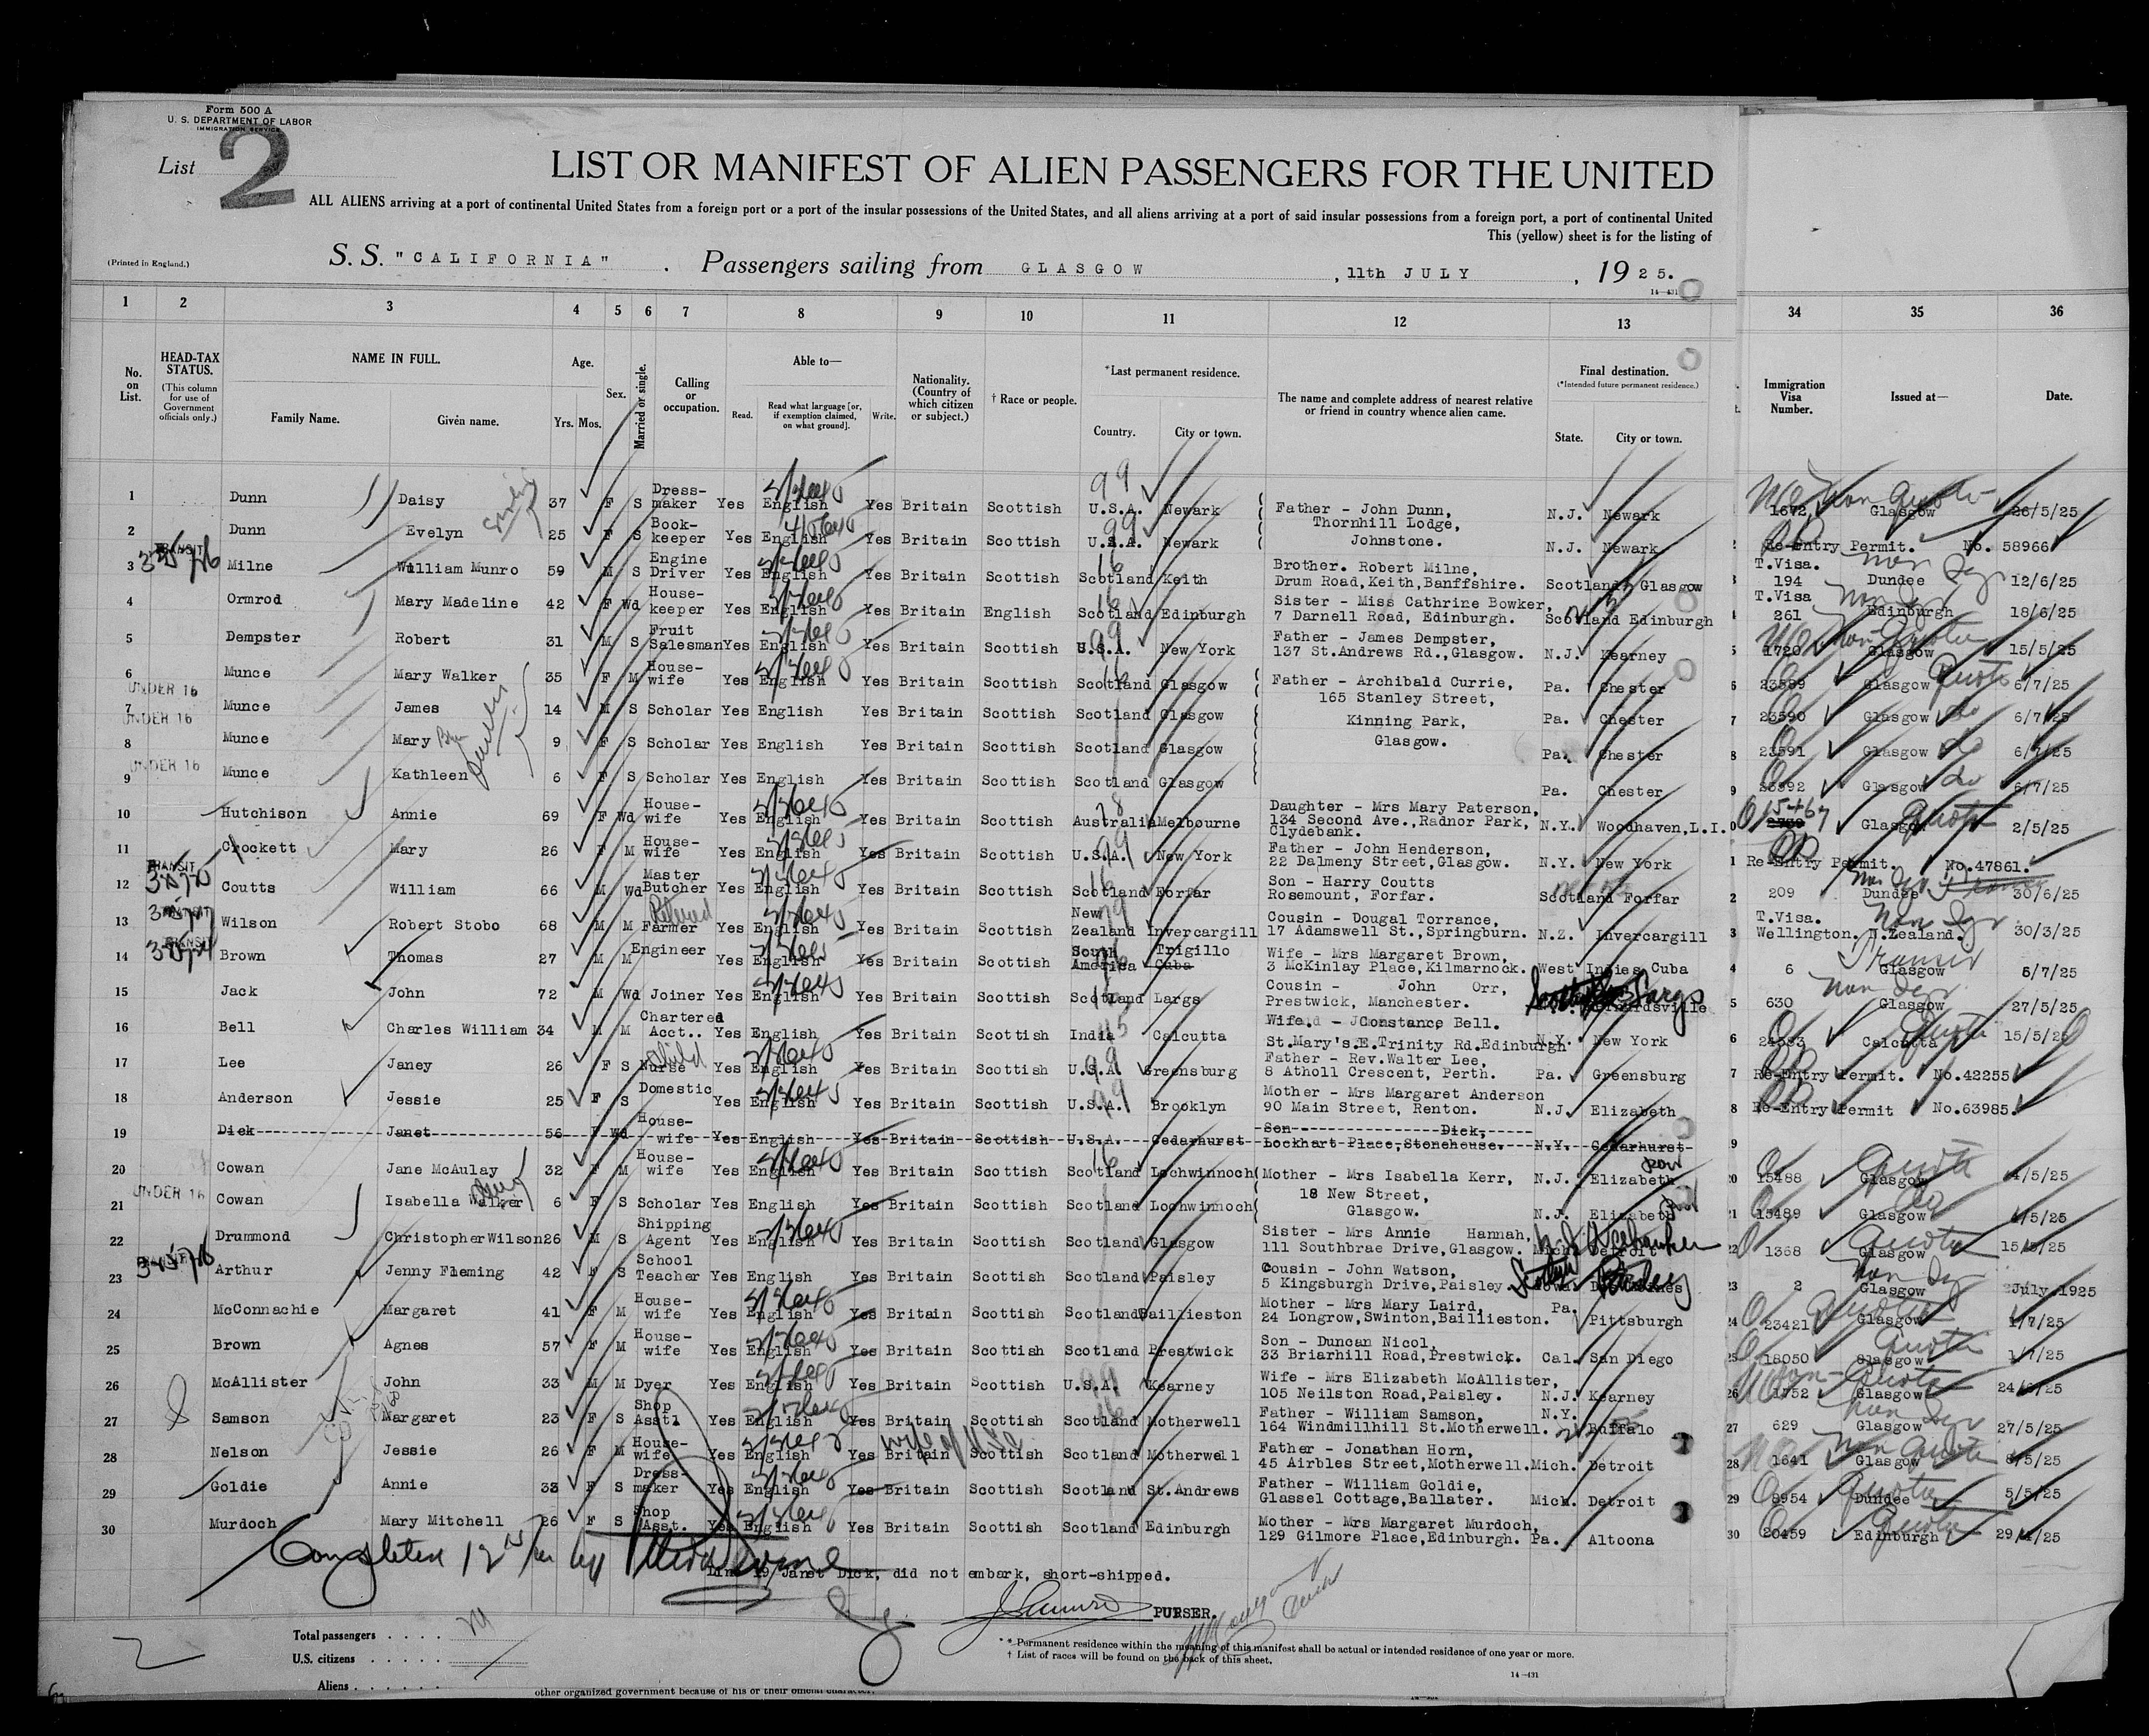 Form 500 A
U. S. DEPARTMENT OF LABOR
IMMIGRATION SERVICE
List 2
LIST OR MANIFEST OF ALIEN PASSENGERS FOR THE UNITED
ALL ALIENS arriving at a port of continental United States from a foreign port or a port of the insular possessions of the United States, and all aliens arriving at a port of said insular possessions from a foreign port, a port of continental United
This (yellow) sheet is for the listing of
(Printed in England.)
S. S. "CALIFORNIA" . Passengers sailing from GLASGOW , 11th JULY , 19 25.
14-431
1 2 3 4 5 6 7 8 9 10 11 12 13 34 35 36
No. on List. HEAD-TAX STATUS. (This column for use of Government officials only.) NAME IN FULL. Family Name. Given name. Age. Yrs. Mos. Sex. Married or single. Calling or occupation. Able to— Read. Read what language [or, if exemption claimed, on what ground]. Write. Nationality. (Country of which citizen or subject.) † Race or people. *Last permanent residence. Country. City or town. The name and complete address of nearest relative or friend in country whence alien came. Final destination. (*Intended future permanent residence.) State. City or town. Immigration Visa Number. Issued at— Date.
1 Dunn Daisy 37 F S Dress-maker Yes English Yes Britain Scottish U.S.A. Newark Father - John Dunn, N.J. Newark 1672 Glasgow 26/5/25
2 Dunn Evelyn 25 F S Book-keeper Yes English Yes Britain Scottish U.S.A. Newark Thornhill Lodge, Johnstone. N.J. Newark Re-Entry Permit. No. 58966
3 TRANSIT Milne William Munro 59 M S Engine Driver Yes English Yes Britain Scottish Scotland Keith Brother. Robert Milne, Drum Road,Keith,Banffshire. Scotland Glasgow T.Visa. 194 Dundee 12/6/25
4 Ormrod Mary Madeline 42 F Wd House-keeper Yes English Yes Britain English Scotland Edinburgh Sister - Miss Cathrine Bowker, 7 Darnell Road, Edinburgh. Scotland Edinburgh T.Visa 261 Edinburgh 18/6/25
5 Dempster Robert 31 M S Fruit Salesman Yes English Yes Britain Scottish U.S.A. New York Father - James Dempster, 137 St.Andrews Rd.,Glasgow. N.J. Kearney 1720 Glasgow 15/5/25
6 Munce Mary Walker 35 F M House-wife Yes English Yes Britain Scottish Scotland Glasgow Father - Archibald Currie, Pa. Chester 23589 Glasgow Quota 6/7/25
7 UNDER 16 Munce James 14 M S Scholar Yes English Yes Britain Scottish Scotland Glasgow 165 Stanley Street, Pa. Chester 23590 Glasgow do 6/7/25
8 UNDER 16 Munce Mary 9 F S Scholar Yes English Yes Britain Scottish Scotland Glasgow Kinning Park, Pa. Chester 23591 Glasgow do 6/7/25
9 UNDER 16 Munce Kathleen 6 F S Scholar Yes English Yes Britain Scottish Scotland Glasgow Glasgow. Pa. Chester 23592 Glasgow do 6/7/25
10 Hutchison Annie 69 F Wd House-wife Yes English Yes Britain Scottish Australia Melbourne Daughter - Mrs Mary Paterson, 134 Second Ave.,Radnor Park, Clydebank. N.Y. Woodhaven,L.I. 15467 Glasgow Quota 2/5/25
11 Crockett Mary 26 F M House-wife Yes English Yes Britain Scottish U.S.A. New York Father - John Henderson, 22 Dalmeny Street,Glasgow. N.Y. New York Re-Entry Permit. No.47861.
12 TRANSIT Coutts William 66 M Wd Master Butcher Yes English Yes Britain Scottish Scotland Forfar Son - Harry Coutts Rosemount, Forfar. Scotland Forfar 209 Dundee 30/6/25
13 Wilson Robert Stobo 68 M M Retired Farmer Yes English Yes Britain Scottish New Zealand Invercargill Cousin - Dougal Torrance, 17 Adamswell St.,Springburn. N.Z. Invercargill T.Visa. Wellington. N.Zealand. 30/3/25
14 TRANSIT Brown Thomas 27 M M Engineer Yes English Yes Britain Scottish South America Trigillo Cuba Wife - Mrs Margaret Brown, 3 McKinlay Place,Kilmarnock. West Indies Cuba 6 Glasgow 6/7/25
15 Jack John 72 M Wd Joiner Yes English Yes Britain Scottish Scotland Largs Cousin - John Orr, Prestwick, Manchester. Largs 630 Glasgow 27/5/25
16 Bell Charles William 34 M M Chartered Acct.. Yes English Yes Britain Scottish India Calcutta Wife. - Constance Bell. St.Mary's.E.Trinity Rd.Edinburgh N.Y. New York Calcutta 15/5/25
17 Lee Janey 26 F S Child Nurse Yes English Yes Britain Scottish U.S.A. Greensburg Father - Rev.Walter Lee, 8 Atholl Crescent, Perth. Pa. Greensburg Re-Entry Permit. No.42255
18 Anderson Jessie 25 F S Domestic Yes English Yes Britain Scottish U.S.A. Brooklyn Mother - Mrs Margaret Anderson 90 Main Street, Renton. N.J. Elizabeth Re-Entry Permit No.63985.
19 Dick Janet 56 F Wd House-wife Yes English Yes Britain Scottish U.S.A. Cedarhurst Son Dick, Lockhart Place,Stonehouse. N.Y. Cedarhurst
20 Cowan Jane McAulay 32 F M House-wife Yes English Yes Britain Scottish Scotland Lochwinnoch Mother - Mrs Isabella Kerr, N.J. Elizabeth 15488 Glasgow Quota 4/5/25
21 UNDER 16 Cowan Isabella Walker 6 F S Scholar Yes English Yes Britain Scottish Scotland Lochwinnoch 18 New Street, Glasgow. N.J. Elizabeth 15489 Glasgow do 4/5/25
22 Drummond Christopher Wilson 26 M S Shipping Agent Yes English Yes Britain Scottish Scotland Glasgow Sister - Mrs Annie Hannah, 111 Southbrae Drive,Glasgow. Mich. Detroit 1368 Glasgow Quota
23 Arthur Jenny Fleming 42 F S School Teacher Yes English Yes Britain Scottish Scotland Paisley Cousin - John Watson, 5 Kingsburgh Drive,Paisley. Scotland Paisley 2 Glasgow 2July.1925
24 McConnachie Margaret 41 F M House-wife Yes English Yes Britain Scottish Scotland Baillieston Mother - Mrs Mary Laird, 24 Longrow,Swinton,Baillieston. Pa. Pittsburgh 23421 Glasgow Quota 1/7/25
25 Brown Agnes 57 F M House-wife Yes English Yes Britain Scottish Scotland Prestwick Son - Duncan Nicol, 33 Briarhill Road,Prestwick. Cal. San Diego 18050 Glasgow Quota 1/7/25
26 McAllister John 33 M M Dyer Yes English Yes Britain Scottish U.S.A. Kearney Wife - Mrs Elizabeth McAllister, 105 Neilston Road,Paisley. N.J. Kearney 1752 Glasgow
27 Samson Margaret 23 F S Shop Asst. Yes English Yes Britain Scottish Scotland Motherwell Father - William Samson, 164 Windmillhill St.Motherwell. N.Y. Buffalo 629 Glasgow 27/5/25
28 Nelson Jessie 26 F M House-wife Yes English Yes Britain Scottish Scotland Motherwell Father - Jonathan Horn, 45 Airbles Street,Motherwell. Mich. Detroit 1641 Glasgow
29 Goldie Annie 33 F S Dress-maker Yes English Yes Britain Scottish Scotland St.Andrews Father - William Goldie, Glassel Cottage,Ballater. Mich. Detroit 8954 Dundee Quota 5/5/25
30 Murdoch Mary Mitchell 26 F S Shop Asst. Yes English Yes Britain Scottish Scotland Edinburgh Mother - Mrs Margaret Murdoch, 129 Gilmore Place,Edinburgh. Pa. Altoona 20459 Edinburgh Quota 29/4/25
Line 19, Janet Dick, did not embark, short-shipped.
PURSER.
Total passengers
U.S. citizens
Aliens
* Permanent residence within the meaning of this manifest shall be actual or intended residence of one year or more.
† List of races will be found on the back of this sheet.
14-431
other organized government because of his or their official character.